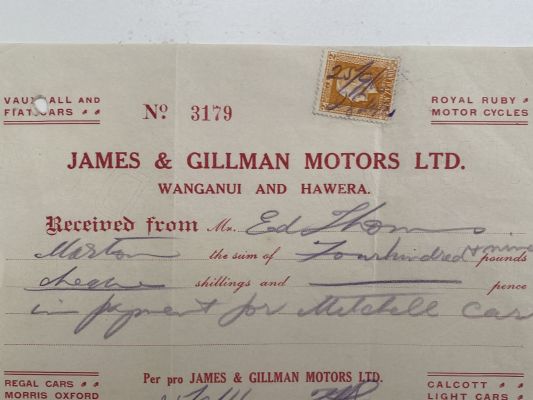 VAUXHALL AND
FIAT CARS
No. 3179
ROYAL RUBY
MOTOR CYCLES
JAMES & GILLMAN MOTORS LTD.
WANGANUI AND HAWERA.
Received from Mr. Ed Thoms
Marton the sum of Fourhundred & nine pounds
cheque shillings and pence
in payment for Mitchell Car
Per pro JAMES & GILLMAN MOTORS LTD.
REGAL CARS
MORRIS OXFORD
CALCOTT
LIGHT CARS